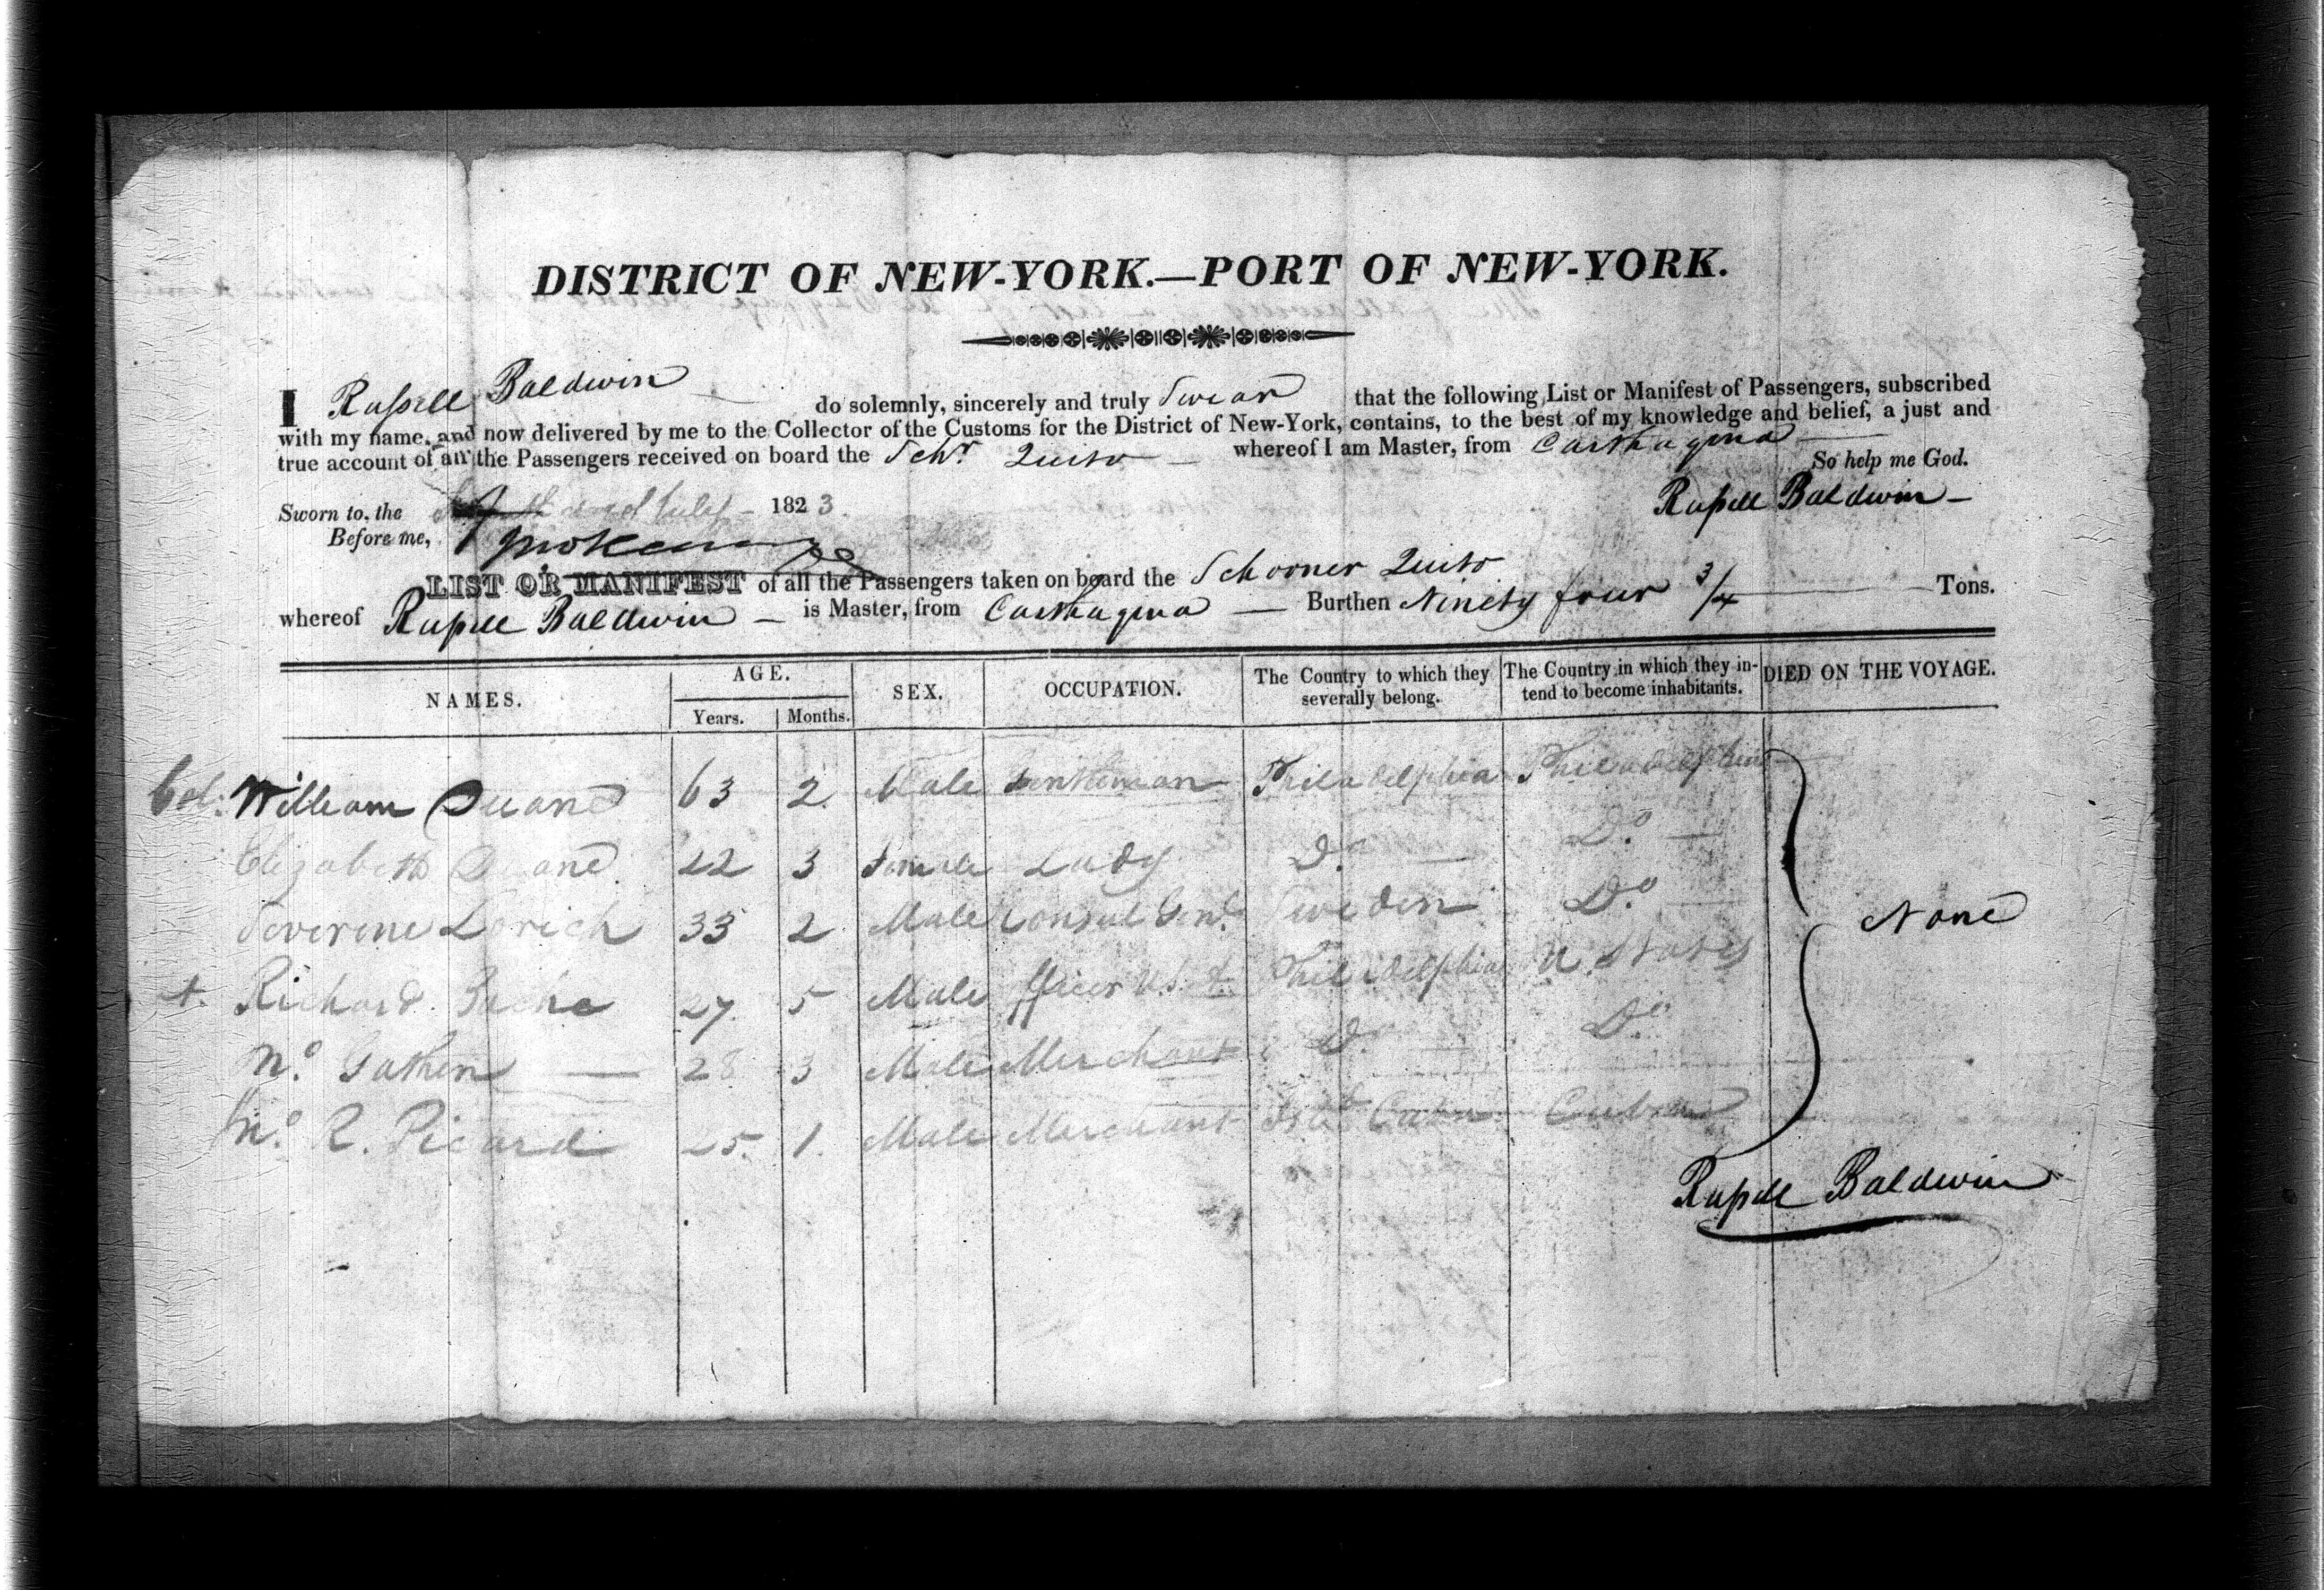 DISTRICT OF NEW-YORK.—PORT OF NEW-YORK.
I Russell Baldwin do solemnly, sincerely and truly Swear that the following List or Manifest of Passengers, subscribed
with my name, and now delivered by me to the Collector of the Customs for the District of New-York, contains, to the best of my knowledge and belief, a just and
true account of all the Passengers received on board the Schr Quito whereof I am Master, from Carthagena
So help me God.
Sworn to, the July 1823
Russell Baldwin
Before me,
LIST OR MANIFEST of all the Passengers taken on board the Schooner Quito
whereof Russell Baldwin is Master, from Carthagena Burthen Ninety four 3/4 Tons.
NAMES. AGE. Years. Months. SEX. OCCUPATION. The Country to which they severally belong. The Country in which they intend to become inhabitants. DIED ON THE VOYAGE.
Col: William Duane 63 2 Male Gentleman Philadelphia Philadelphia
Elizabeth Duane 22 3 Female Lady Do Do
Severine Lorich 33 2 Male Consul Genl Sweden Do
Richard Bache 27 5 Male Officer U.S.A. Philadelphia U. States
None
Mo Gathen 28 3 Male Merchant Do Do
Mo R. Picard 25 1 Male Merchant Cuba Cuba
Russell Baldwin